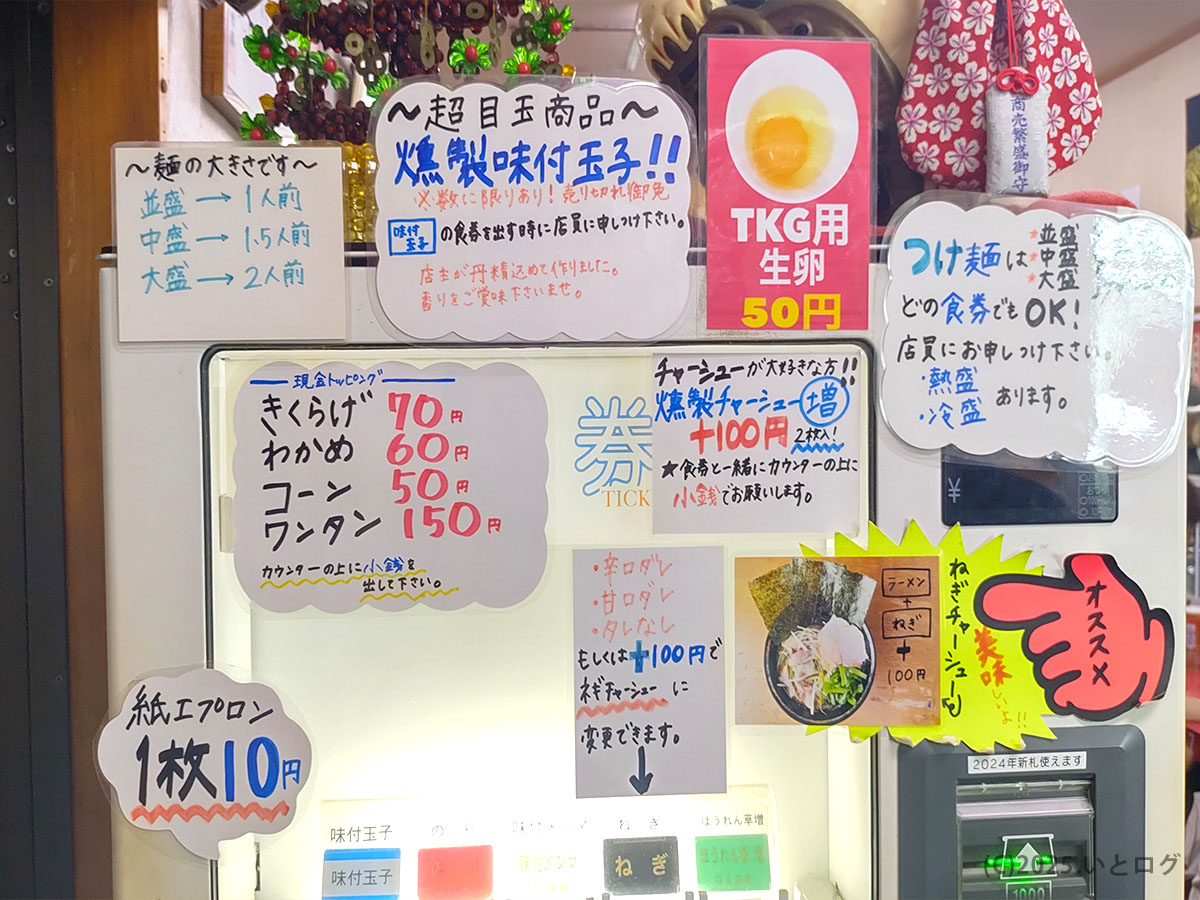 ～麺の大きさです～
並盛→1人前
中盛→1.5人前
大盛→2人前
～超目玉商品～
燻製味付玉子!!
※数に限りあり!売り切れ御免
味付玉子の食券を出す時に店員に申しつけ下さい。
店主が丹精込めて作りました。
香りをご賞味下さいませ。
TKG用
生卵
50円
商売繁盛御守
つけ麺は
★並盛
★中盛
★大盛
どの食券でもOK!
店員にお申しつけ下さい。
・熱盛
・冷盛
あります。
現金トッピング
きくらげ 70円
わかめ 60円
コーン 50円
ワンタン 150円
カウンターの上に小銭を
出して下さい。
券
TICK
チャーシューが大好きな方!!
燻製チャーシュー増
+100円 2枚入!
★食券と一緒にカウンターの上に
小銭でお願いします。
¥
・辛口ダレ
・甘口ダレ
・タレなし
もしくは+100円で
ネギチャーシューに
変更できます。
↓
ラーメン
+
ねぎ
+
100円
ねぎチャーシューも
美味しいよ!!
オススメ
紙エプロン
1枚10円
2024年新札使えます
1000
味付玉子
の
ねぎ
ほうれん草増
味付玉子
のり
味付メンマ
ねぎ
ほうれん草増
(C)2025.いとログ